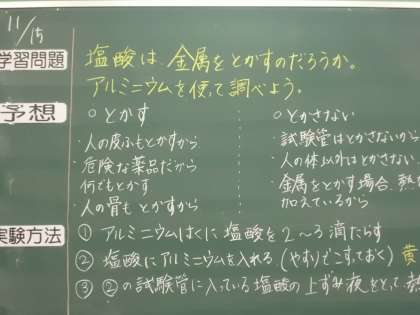 11/15
学習問題
塩酸は、金属をとかすのだろうか。
アルミニウムを使って調べよう。
予想
○とかす
・人の皮ふもとかすから
・危険な薬品だから
何でもとかす
・人の骨もとかすから
○とかさない
・試験管はとかさないから
・人の体以外はとかさない
・金属をとかす場合、熱を
加えているから
実験方法
① アルミニウムはくに塩酸を2～3滴たらす
② 塩酸にアルミニウムを入れる(やすりでこすっておく) 黄
③ ②の試験管に入っている塩酸の上ずみ液をとって、熱